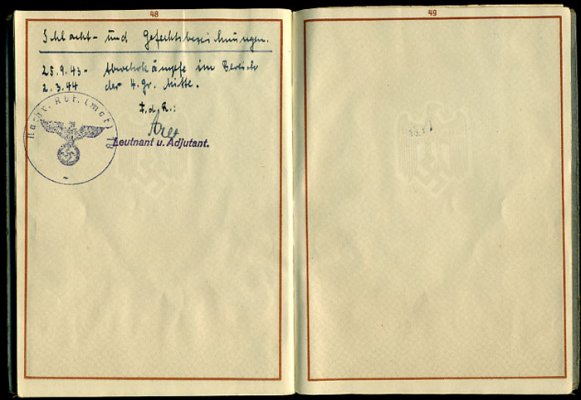 48
Schlacht- und Gefechtsbezeichnungen.
25.9.43 - Abwehrkämpfe im Bereich
2.3.44 der H. Gr. Mitte.
F.d.R.:
Leutnant u. Adjutant.
Nachr. Abt. (mot)
49